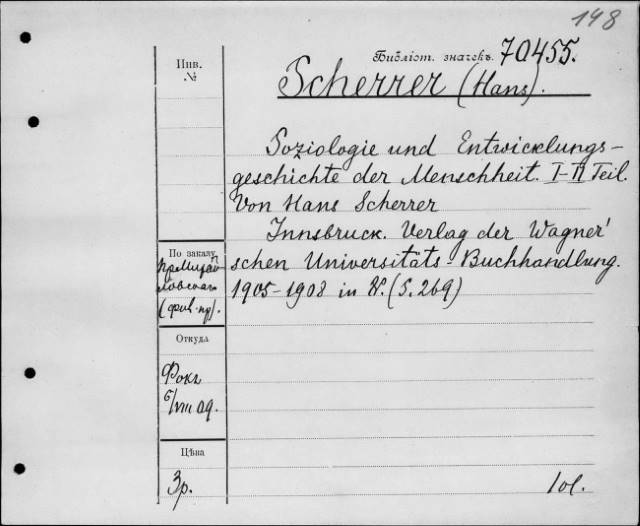 148
Библіот. значекъ 70455.
Инв.
№
Scherrer (Hans).
Soziologie und Entwicklungs-
geschichte der Menschheit. I-II Teil.
Von Hans Scherrer
Innsbruck. Verlag der Wagner'
schen Universitäts-Buchhandlung.
1905-1908 in 8°. (S. 269)
По заказу
Откуда
Фокъ
6/VIII 09.
Цѣна
3р.